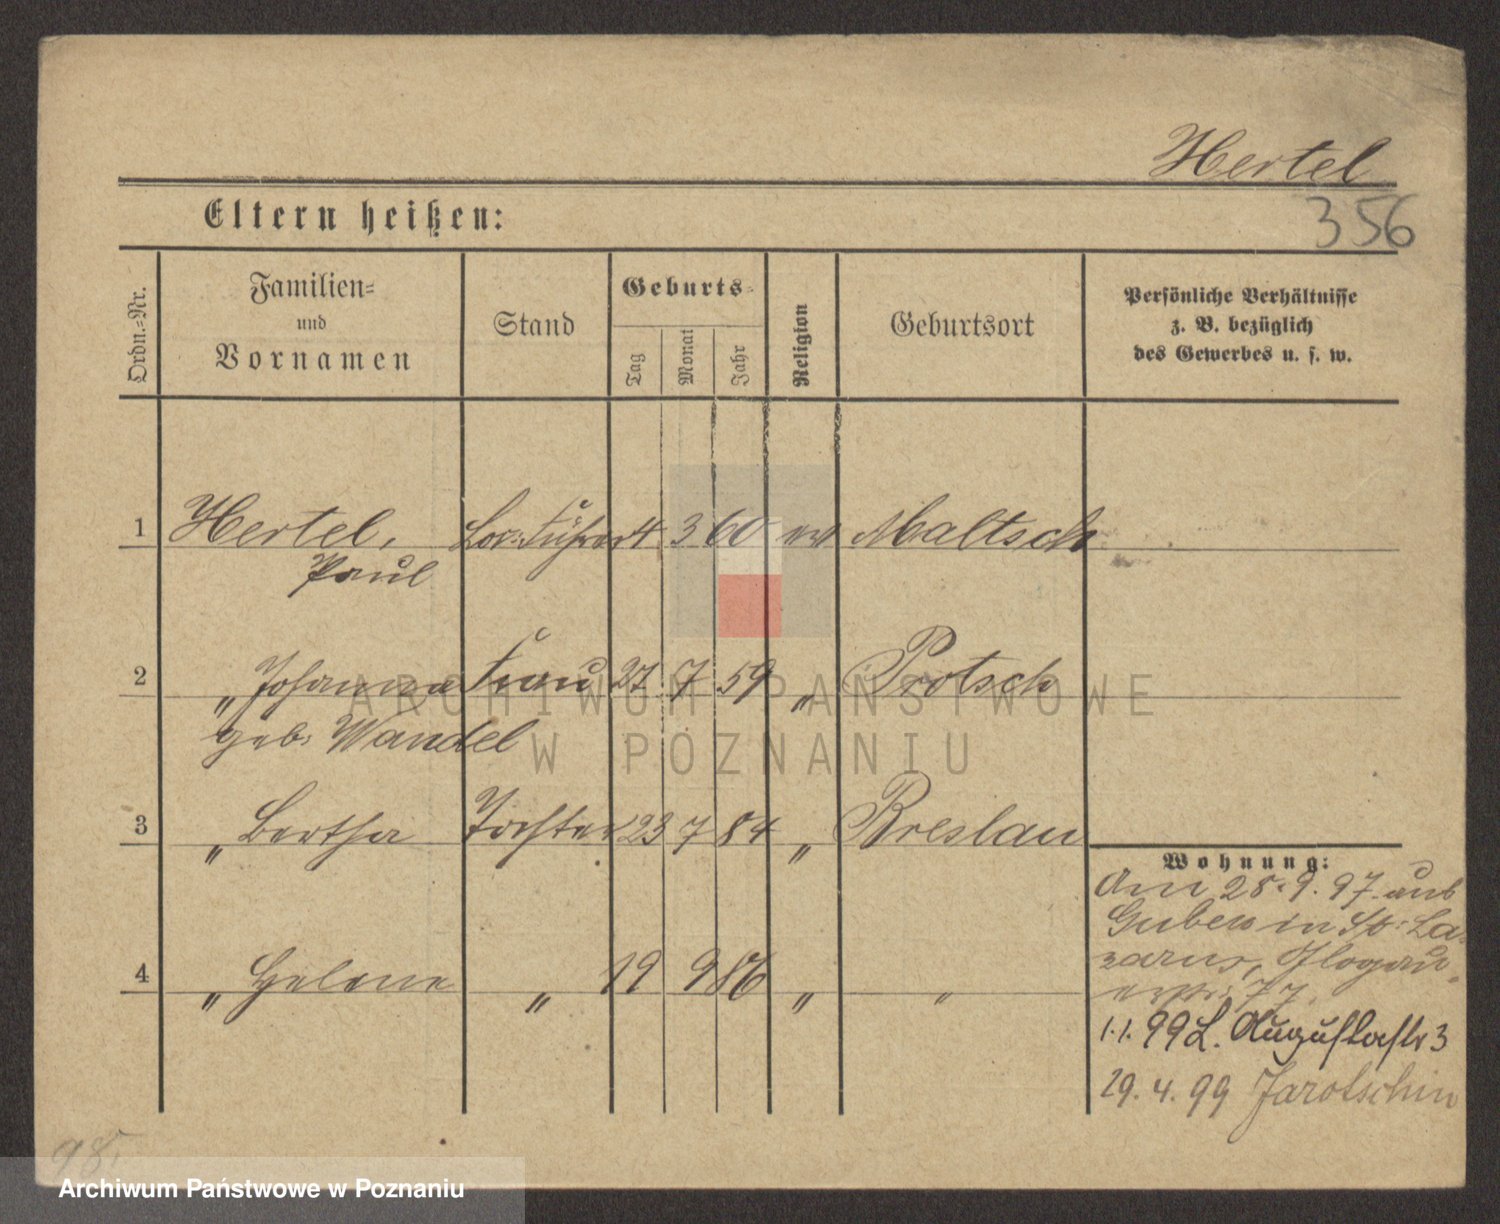 Hertel
356
Eltern heißen:
Ordn.-Nr.
Familien-
und
Vornamen
Stand
Geburts-
Tag
Monat
Jahr
Religion
Geburtsort
Persönliche Verhältnisse
z. B. bezüglich
des Gewerbes u. s. w.
1 Hertel, Lok: Führer 4 3 60 ev Maltsch
Paul
2 " Johanna Frau 27 7 59 " Protsch
geb: Wandel
3 " Bertha Tochter 23 7 84 " Breslau
4 " Helene " 19 9 86 " "
Wohnung:
Am 28.9.97 aus
Guben in St: La-
zarus, Glogau-
erstr: 77.
1.1.99 L. Augustastr 3
29.4.99 Jarotschin
98.
ARCHIWUM PAŃSTWOWE
W POZNANIU
Archiwum Państwowe w Poznaniu